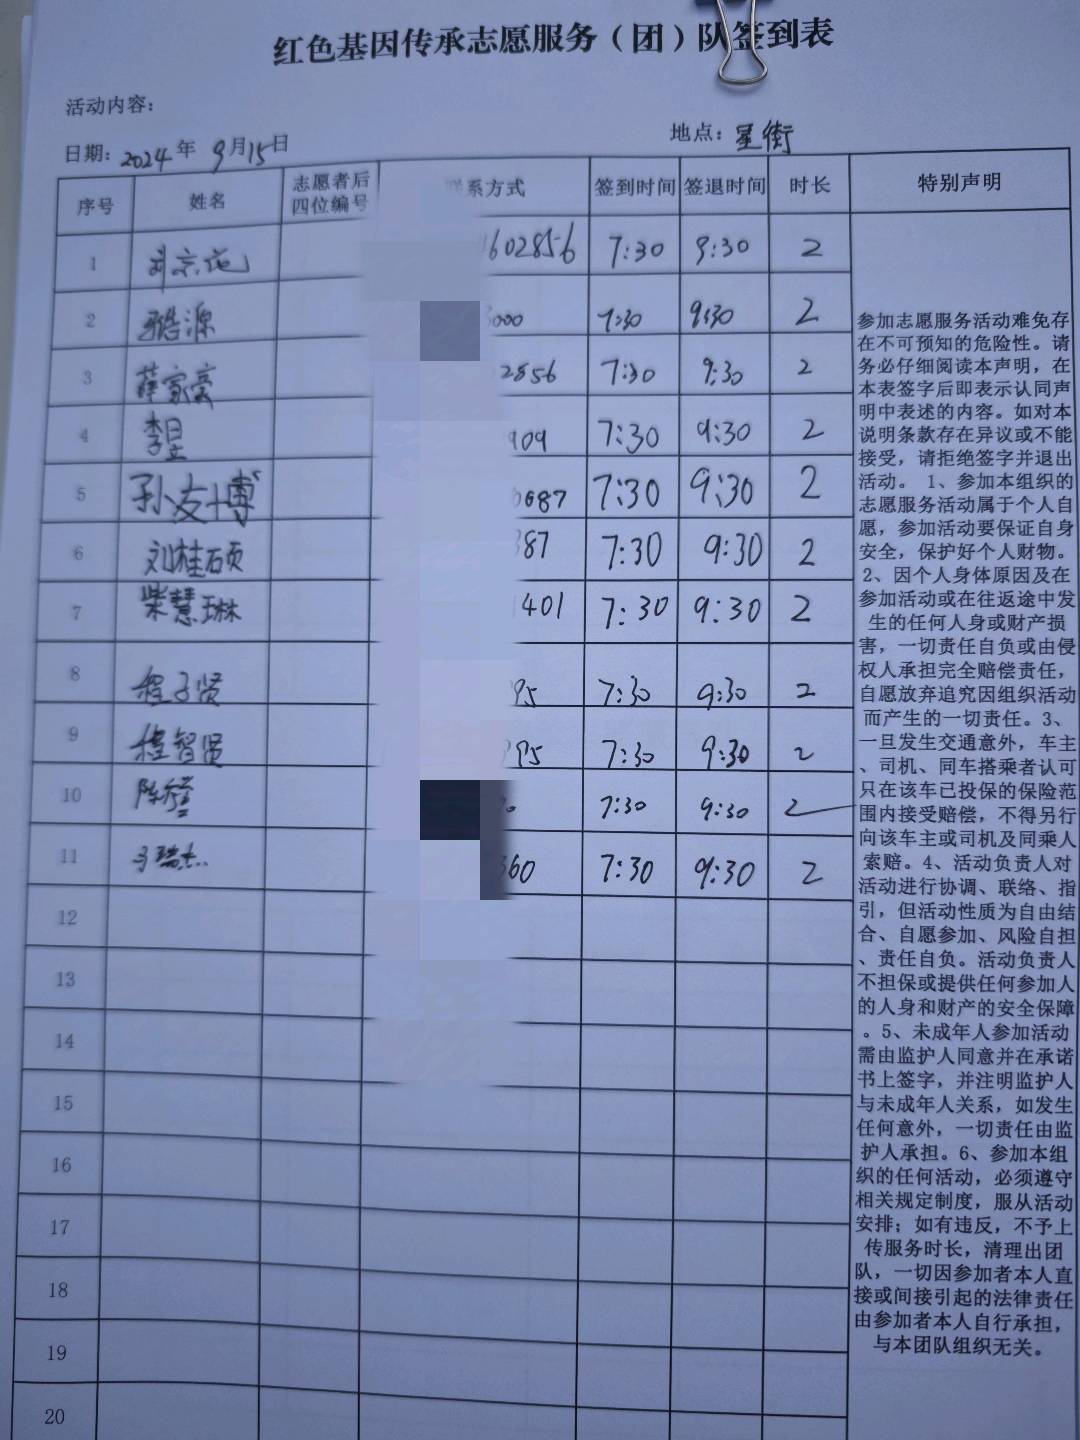 红色基因传承志愿服务（团）队签到表
活动内容：
日期：2024年 9月15日
地点：星街
序号 姓名 志愿者后四位编号 联系方式 签到时间 签退时间 时长 特别声明
1 1602856 7:30 9:30 2
2 浩源 3000 7:30 9:30 2
3 薛家豪 2856 7:30 9:30 2
4 李昱 909 7:30 9:30 2
5 孙友博 6687 7:30 9:30 2
6 刘桂硕 387 7:30 9:30 2
7 柴慧琳 1401 7:30 9:30 2
8 程子贤 95 7:30 9:30 2
9 程智贤 995 7:30 9:30 2
10 陈 7:30 9:30 2
11 马瑞杰 360 7:30 9:30 2
12
13
14
15
16
17
18
19
20
参加志愿服务活动难免存
在不可预知的危险性。请
务必仔细阅读本声明，在
本表签字后即表示认同声
明中表述的内容。如对本
说明条款存在异议或不能
接受，请拒绝签字并退出
活动。 1、参加本组织的
志愿服务活动属于个人自
愿，参加活动要保证自身
安全，保护好个人财物。
2、因个人身体原因及在
参加活动或在往返途中发
生的任何人身或财产损
害，一切责任自负或由侵
权人承担完全赔偿责任，
自愿放弃追究因组织活动
而产生的一切责任。3、
一旦发生交通意外，车主
、司机、同车搭乘者认可
只在该车已投保的保险范
围内接受赔偿，不得另行
向该车主或司机及同乘人
索赔。4、活动负责人对
活动进行协调、联络、指
引，但活动性质为自由结
合、自愿参加、风险自担
、责任自负。活动负责人
不担保或提供任何参加人
的人身和财产的安全保障
。5、未成年人参加活动
需由监护人同意并在承诺
书上签字，并注明监护人
与未成年人关系，如发生
任何意外，一切责任由监
护人承担。6、参加本组
织的任何活动，必须遵守
相关规定制度，服从活动
安排；如有违反，不予上
传服务时长，清理出团
队，一切因参加者本人直
接或间接引起的法律责任
由参加者本人自行承担，
与本团队组织无关。